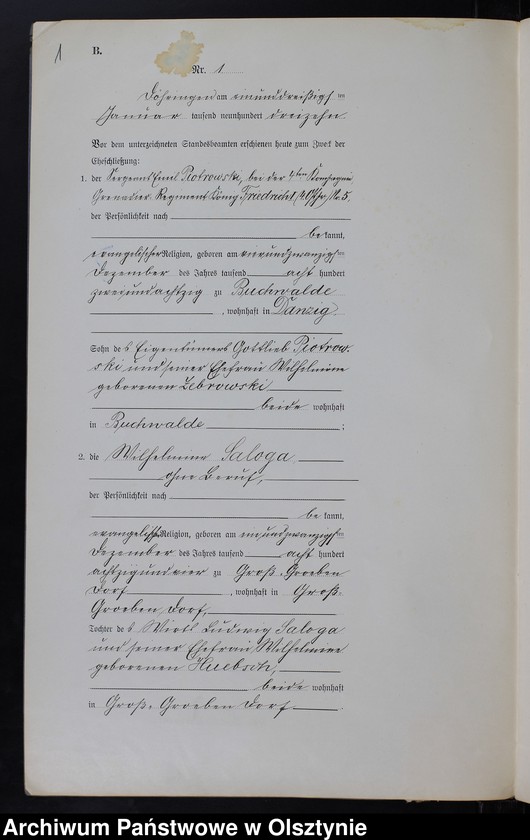 1
B.
Nr. 1
Döhringen am einunddreißigsten
Januar tausend neunhundert dreizehn.
Vor dem unterzeichneten Standesbeamten erschienen heute zum Zweck der
Eheschließung:
1. der Sergeant Emil Piotrowski, bei der 4ten Kompagnie
Grenadier-Regiment König Friedrich I (4. Ostpr.) No 5.
der Persönlichkeit nach
bekannt,
evangelischer Religion, geboren am vierundzwanzigsten
Dezember des Jahres tausend acht hundert
zweiundachtzig zu Buchwalde
, wohnhaft in Danzig,
Sohn des Eigentümers Gottlieb Piotrow-
ski und seiner Ehefrau Wilhelmine
geborenen Zebrowski
beide wohnhaft
in Buchwalde ;
2. die Wilhelmine Saloga
ohne Beruf,
der Persönlichkeit nach
bekannt,
evangelischer Religion, geboren am neunundzwanzigsten
Dezember des Jahres tausend acht hundert
achtzigundvier zu Groß-Groeben
Dorf , wohnhaft in Groß-
Groeben Dorf,
Tochter des Wirts Ludwig Saloga
und seiner Ehefrau Wilhelmine
geborenen Huebsch,
beide wohnhaft
in Groß-Groeben Dorf .
Archiwum Państwowe w Olsztynie